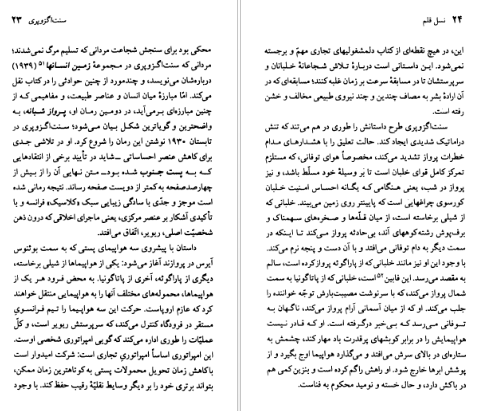 سنت‌اگزوپری ۲۳
محکی بود برای سنجش شجاعت مردانی که تسلیم مرگ نمی‌شدند؛
مردانی که سنت‌اگزوپری در مجموعهٔ زمین انسانها ۵۱ (۱۹۳۹)
درباره‌شان می‌نویسد، و چندمورد از چنین حوادثی را در کتاب نقل
می‌کند. مبارزهٔ میان انسان و عناصر طبیعت، و مفاهیمی که از
چنین مبارزه‌ای برمی‌آید، در دومین رمان او، پرواز شبانه، به
واضحترین و گویاترین شکل بیان می‌شود؛ سنت‌اگزوپری در
تابستان ۱۹۳۰ نوشتن این رمان را شروع کرد. او در تلاشی جدی
برای کاهش عنصر احساساتی ــ شاید در تأیید برخی از انتقادهایی
که به پست جنوب شده بود ــ متن نهایی آن را از بیش از
چهارصدصفحه به‌کمتر از دویست صفحه رساند. نتیجه رمانی شده
است موجز و جدّی با سادگی زیبایی سبک «کلاسیک» فرانسه و با
تأکیدی آشکار بر عنصر مرکزی، یعنی ماجرای اخلاقی که درون ذهن
شخصیّت اصلی، ریویر، اتّفاق می‌افتد.
داستان با پیشروی سه هواپیمای پستی که به سمت بوئنوس
آیرس در پروازند آغاز می‌شود: یکی از هواپیماها از شیلی برخاسته،
دیگری از پاراگوئه، آخری از پاتاگونیا. به محض فرود هر یک از
هواپیماها، محموله‌های مختلف آنها را به هواپیمایی منتقل خواهند
کرد که عازم اروپاست. حرکت این سه هواپیما را تیم فرانسوی
مستقر در فرودگاه کنترل می‌کند، که سرپرستش ریویر است، و کلّ
عملیّات را طوری اداره می‌کند که گویی امپراتوری شخصی اوست.
این امپراتوری اساساً امپراتوری تجاری است: شرکت امیدوار است
باکاهش زمان تحویل محمولات پستی به کوتاهترین زمان ممکن،
بتواند برتری خود را بر دیگر وسایط نقلیّهٔ رقیب حفظ کند. با وجود
۲۴ نسل قلم
این، در هیچ نقطه‌ای از کتاب دلمشغولیهای تجاری مهمّ و برجسته
نمی‌شود. این داستانی است دربارهٔ تلاش شجاعانهٔ خلبانان و
سرپرستشان تا در مسابقهٔ سرعت بر زمان غلبه کنند؛ مسابقه‌ای که در
آن ارادهٔ بشر به مصاف چندین و چند نیروی طبیعی مخالف و خشن
رفته است.
سنت‌اگزوپری طرح داستانش را طوری در هم می‌تند که تنش
دراماتیک شدیدی ایجاد کند. حالت تعلیق را با هشدارهای مدام
خطرات پرواز تشدید می‌کند، مخصوصاً هوای توفانی، که مستلزم
تمرکز کامل قوای خلبان است تا بَر وسیلهٔ خود مسلّط باشد، و نیز
پرواز در شب، یعنی هنگامی‌که یگانه احساس امنیت خلبان
کورسوی چراغهایی است که پایینتر روی زمین می‌بیند. خلبانی که
از شیلی برخاسته است، از میان قلّه‌ها و صخره‌های سهمناک و
برف‌پوش رشته‌کوههای آند، بی‌حادثه پرواز می‌کند تا اینکه در
سمت دیگر به دام توفانی می‌افتد و با آن دست و پنجه نرم می‌کند.
با وجود این او نیز مانند خلبانی که از پاراگوئه پروازکرده است، سالم
به مقصد می‌رسد. این فابین ۵۲ است، خلبانی که از پاتاگونیا به سمت
شمال پرواز می‌کند، که با سرنوشت مصیبت‌بارش توجّه خواننده را
جلب می‌کند. او که از میان آسمانی آرام پرواز می‌کند، ناگهان به
توفانی می‌رسد که بی‌خبر درگرفته است. او که قادر نیست
هواپیمایش را در برابر کوبشهای پرقدرت باد مهارکند، چشمش به
ستاره‌ای در بالای سرش می‌افتد و می‌گذارد هواپیما اوج بگیرد و از
پوشش ابرها خارج شود. او راهش راگم کرده است و بنزین کمی هم
در باکش دارد، و حال خسته و نومید محکوم به فناست.